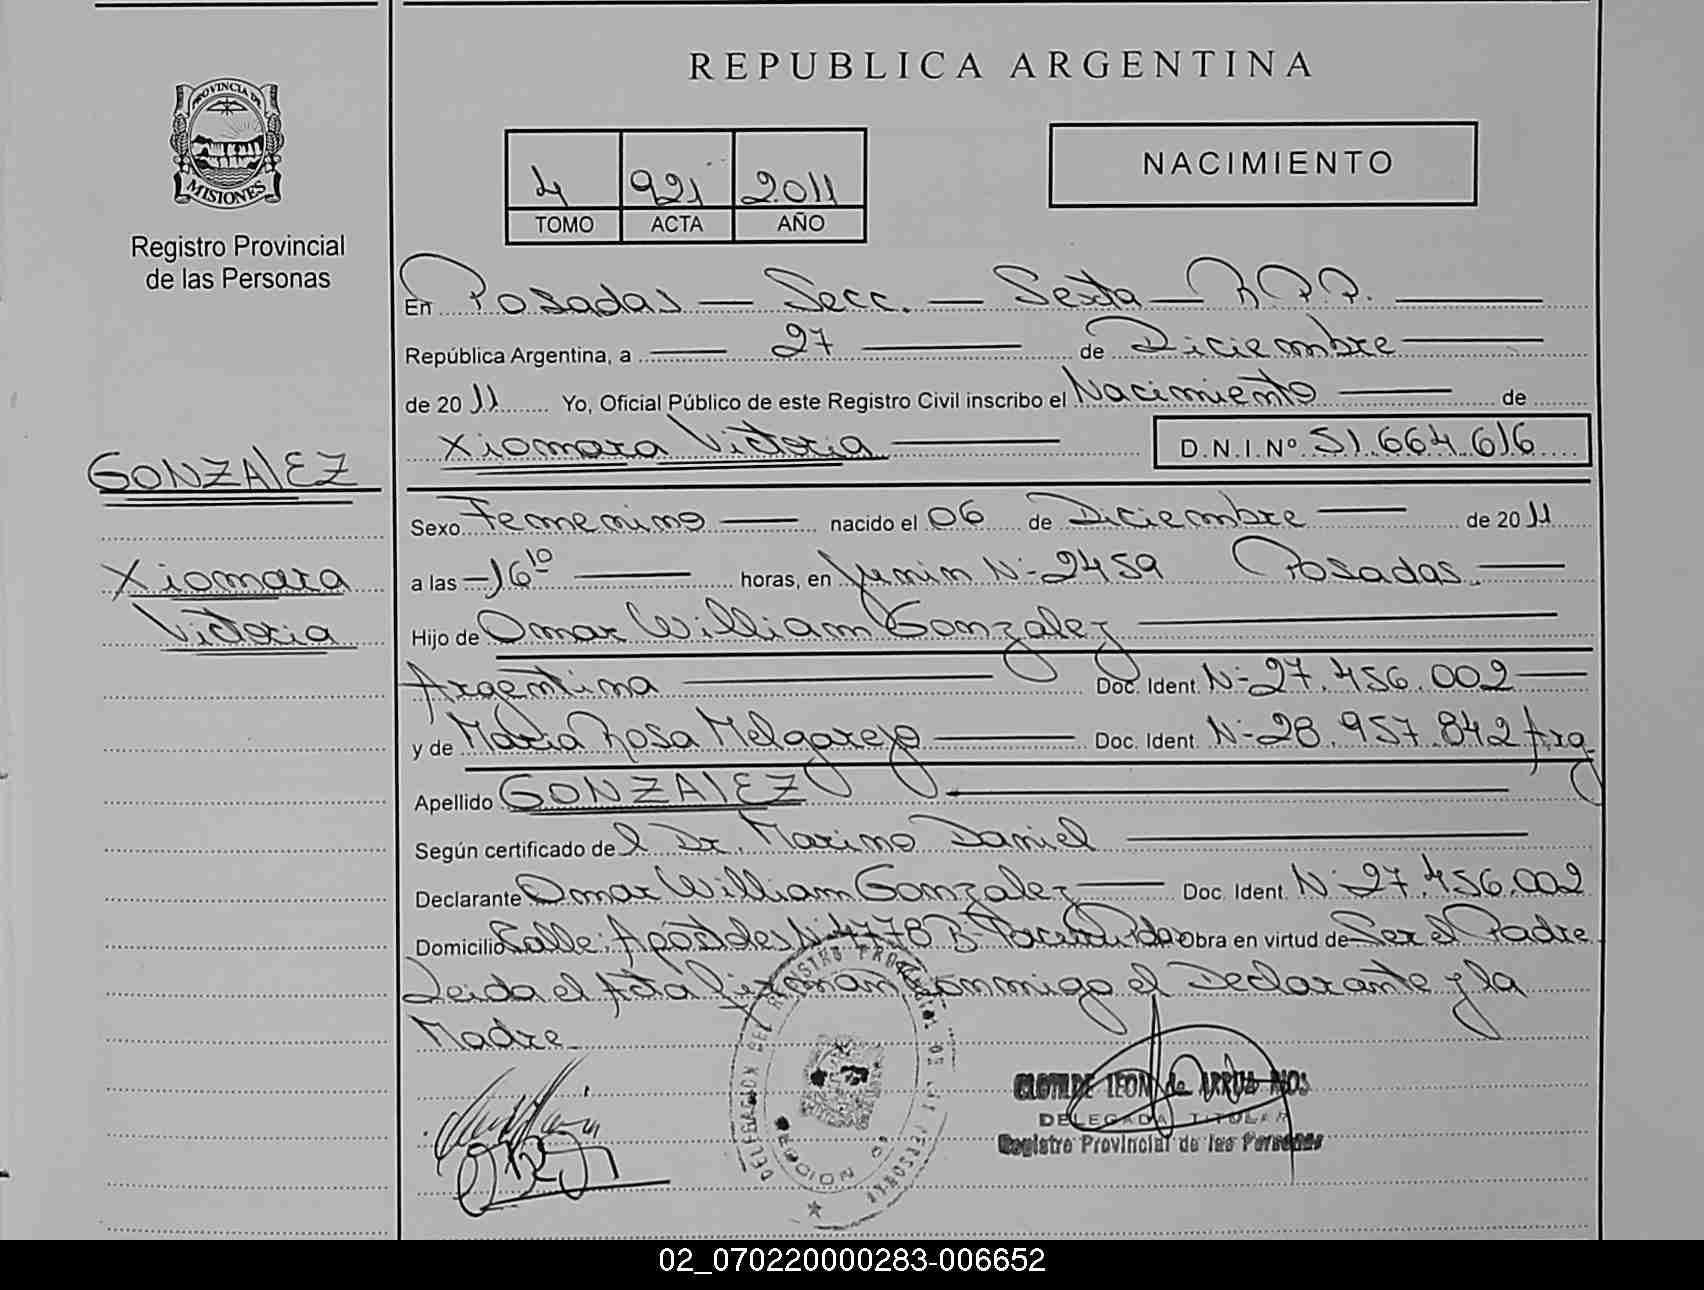 REPUBLICA ARGENTINA
PROVINCIA DE
MISIONES
Registro Provincial
de las Personas
4 921 2011
TOMO ACTA AÑO
NACIMIENTO
En Posadas — Secc. — Sexta — R.P.P.
República Argentina, a 27 de Diciembre
de 2011 Yo, Oficial Público de este Registro Civil inscribo el Nacimiento de
Xiomara Victoria D.N.I.Nº 51.664.616
GONZALEZ
Xiomara
Victoria
Sexo Femenino nacido el 06 de Diciembre de 2011
a las 16 10 horas, en Junin Nº 2459 Posadas.
Hijo de Omar William Gonzalez
Argentina Doc. Ident. Nº 27.456.002
y de Maria Rosa Melgarejo Doc. Ident. Nº 28.957.842 Arg
Apellido GONZALEZ
Según certificado del Dr. Marino Daniel
Declarante Omar William Gonzalez Doc. Ident. Nº 27.456.002
Domicilio Calle: Apóstoles Nº 4778 Bº Obra en virtud de Ser el Padre
Leida el Acta firman conmigo el Declarante y la
Madre
DELEGACION DEL REGISTRO PROVINCIAL DE LAS PERSONAS
CLOTILDE LEON de
DELEGADA TITULAR
Registro Provincial de las Personas
02_070220000283-006652